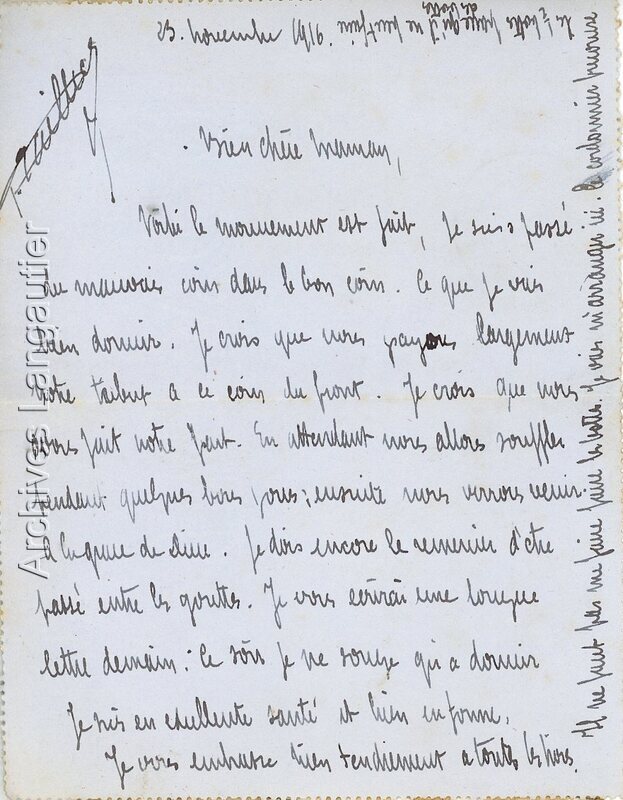 23. novembre 1916.
Bien chère Maman,
Voilà le mouvement est fait, Je suis passé
du mauvais coin dans le bon coin. Ce que je vais
bien dormir. Je crois que nous payons largement
notre tribut a ce coin du front. Je crois que nous
avons fait notre part. En attendant nous allons souffler
pendant quelques bons jours; ensuite nous verrons venir
à la grace de dieu. Je dois encore le remercier d'être
passé entre les gouttes. Je vous écrirai une longue
lettre demain: ce soir je ne songe qu'a dormir
Je suis en excellente santé et bien en forme.
Je vous embrasse bien tendrement a toutes les trois.
Il ne faut pas me faire faire les bottes. Je vais m'arranger ici. le cordonnier
parce qu'il ne peut faire
Archives Langautier